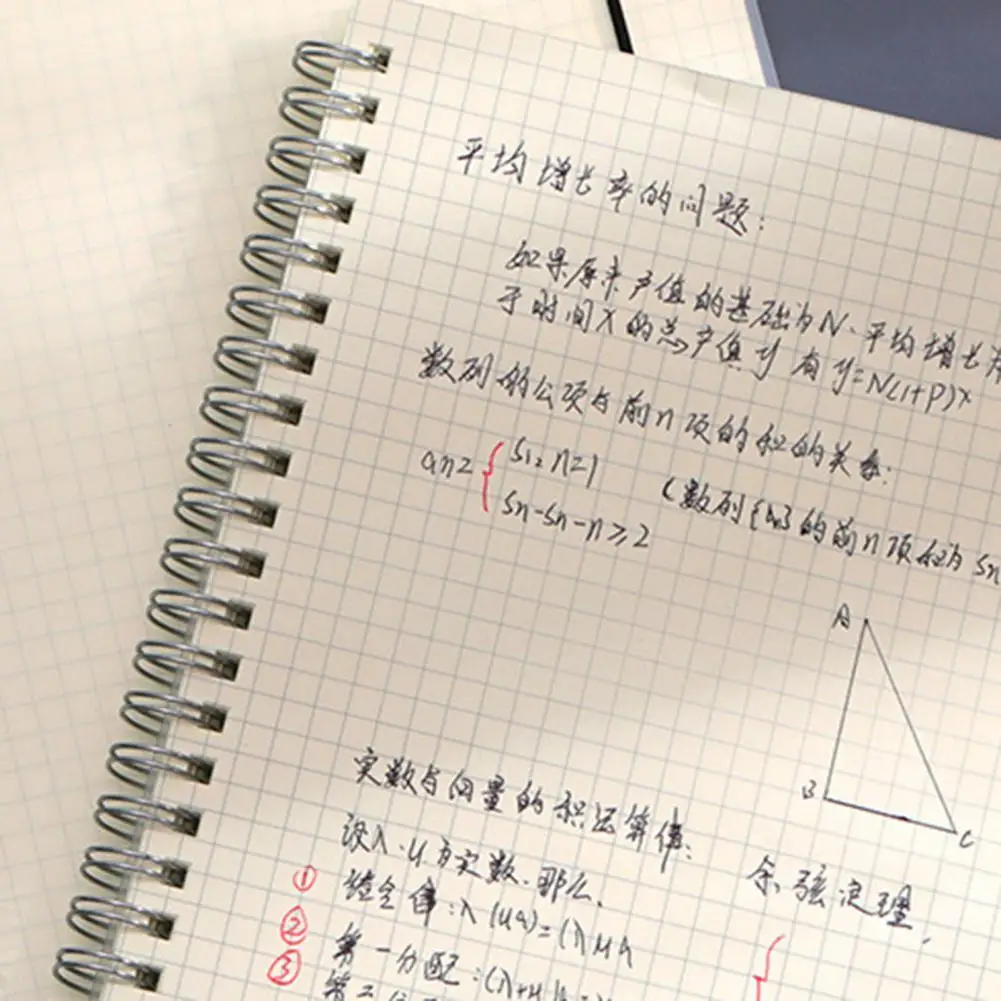 平均增长率的问题:
如果原来产值的基础为N.平均增长率
于时间X的总产值y 有y=N(1+P)x
数列的公项与前n项的和的关系:
an= { S1, n=1 (数列{an}的前n项和为Sn
Sn-Sn-n≥2
A
B
C
实数与向量的积运算律:
设λ.μ为实数.那么.
余弦定理.
① 结合律:λ(μa)=(λμa
② 第一分配:(λ+μ
③ 第二分